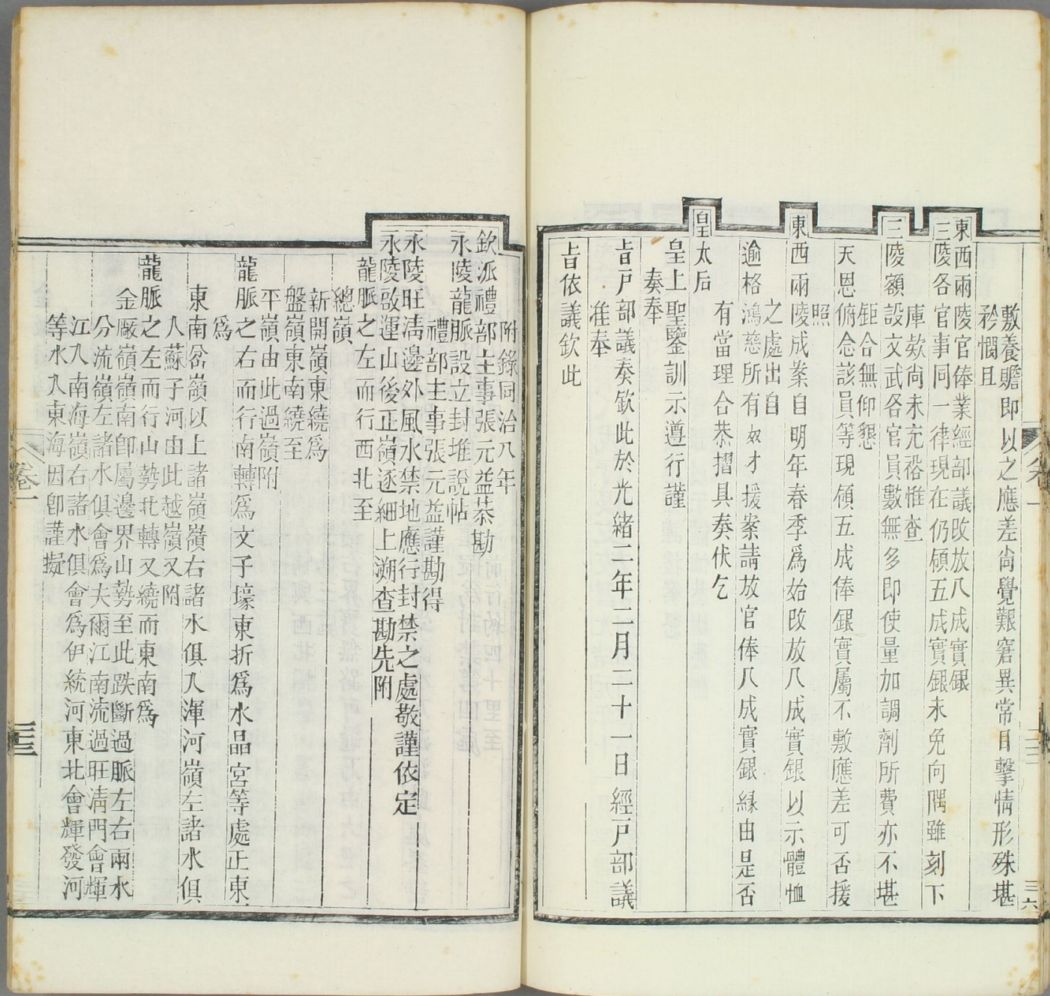 敷養贍即以之應差尚覺艱窘異常目擊情形殊堪
矜憫且
東西兩陵官俸業經部議改放八成實銀
三陵各官事同一律現在仍領五成實銀未免向隅雖刻下
庫欵尚未充裕惟查
三陵額設文武各官員數無多即使量加調劑所費亦不堪
鉅合無仰懇
天恩俯念該員等現領五成俸銀實屬不敷應差可否援
照
東西兩陵成案自明年春季爲始改放八成實銀以示體恤
之處出自
逾格鴻慈所有奴才援案請放官俸八成實銀緣由是否
有當理合恭摺具奏伏乞
皇太后
皇上聖鑒訓示遵行謹
奏奉
旨戸部議奏欽此於光緒二年二月二十一日經戸部議
准奉
旨依議欽此
卷一
三六
附錄同治八年
欽派禮部主事張元益恭勘
永陵龍脈設立封堆說帖
禮部主事張元益謹勘得
永陵旺清邊外風水禁地應行封禁之處敬謹依定
永陵啟運山後正嶺逐細上溯查勘先附
龍脈之左而行西北至
總嶺
新開嶺東繞爲
盤嶺東南繞至
平嶺由此過嶺附
龍脈之右而行南轉爲文子壕東折爲水晶宮等處正東
爲
東南岔嶺以上諸嶺嶺右諸水俱入渾河嶺左諸水俱
入蘇子河由此越嶺又附
龍脈之左而行山勢北轉又繞而東南爲
金厰嶺嶺南卽屬邊界山勢至此跌斷過脈左右兩水
分流嶺左諸水俱會爲夫爾江南流過旺清門會輝
江入南海嶺右諸水俱會爲伊統河東北會輝發河
等水入東海因卽謹擬
卷一